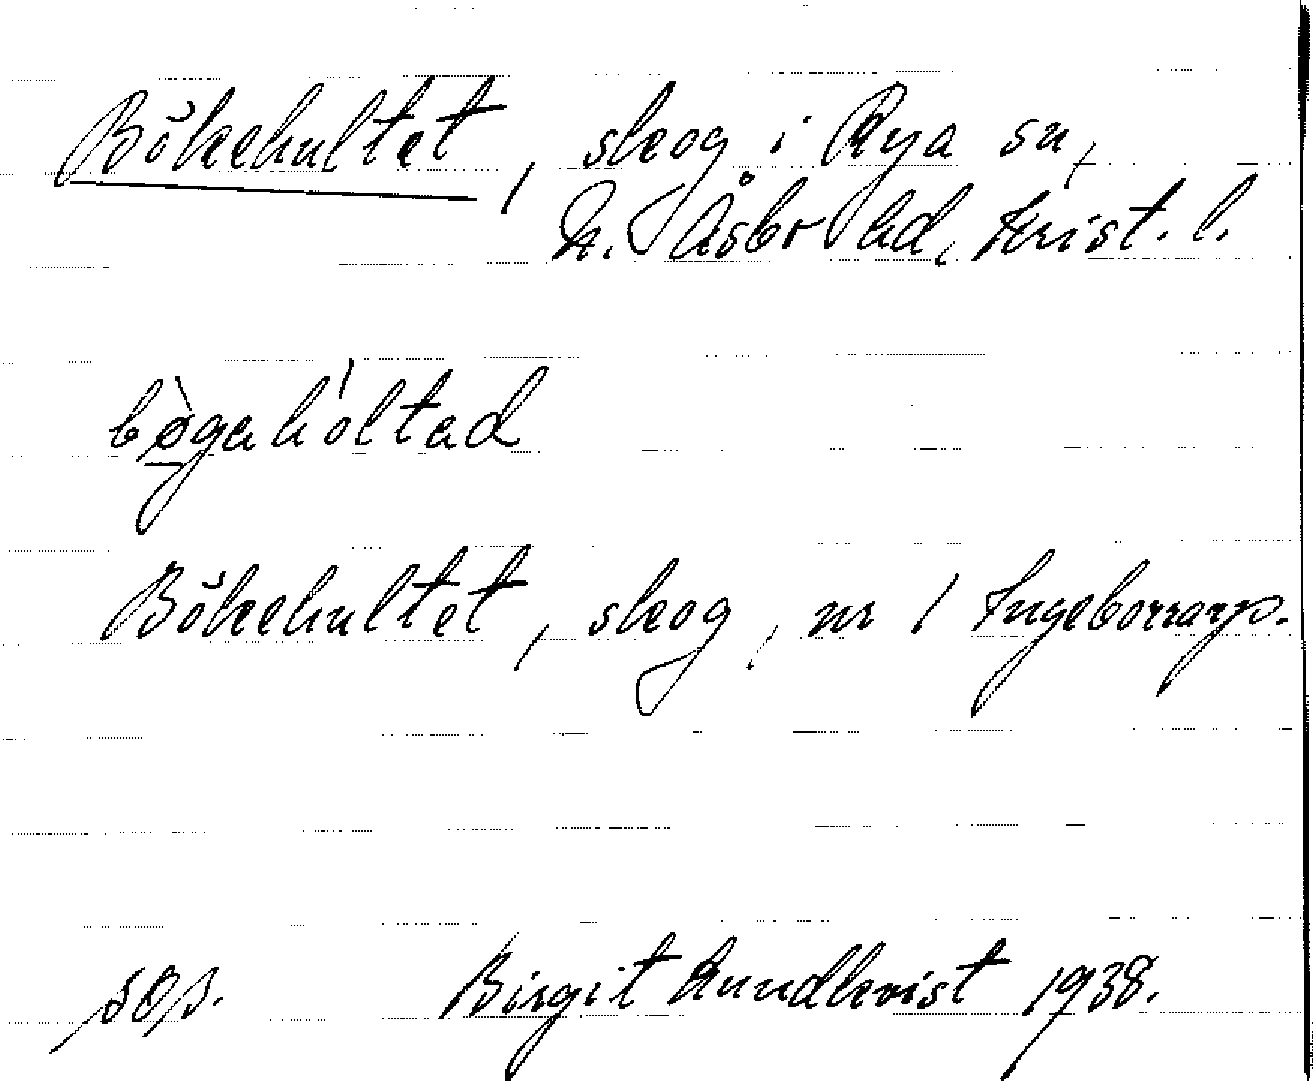 Bökehultet, skog i Rya sn,
N. Åsbo hd, Krist. l.
bø̀gahóltad
Bökehultet, skog, nr 1 Ingeborrarp.
Birgit Rundkvist 1938.